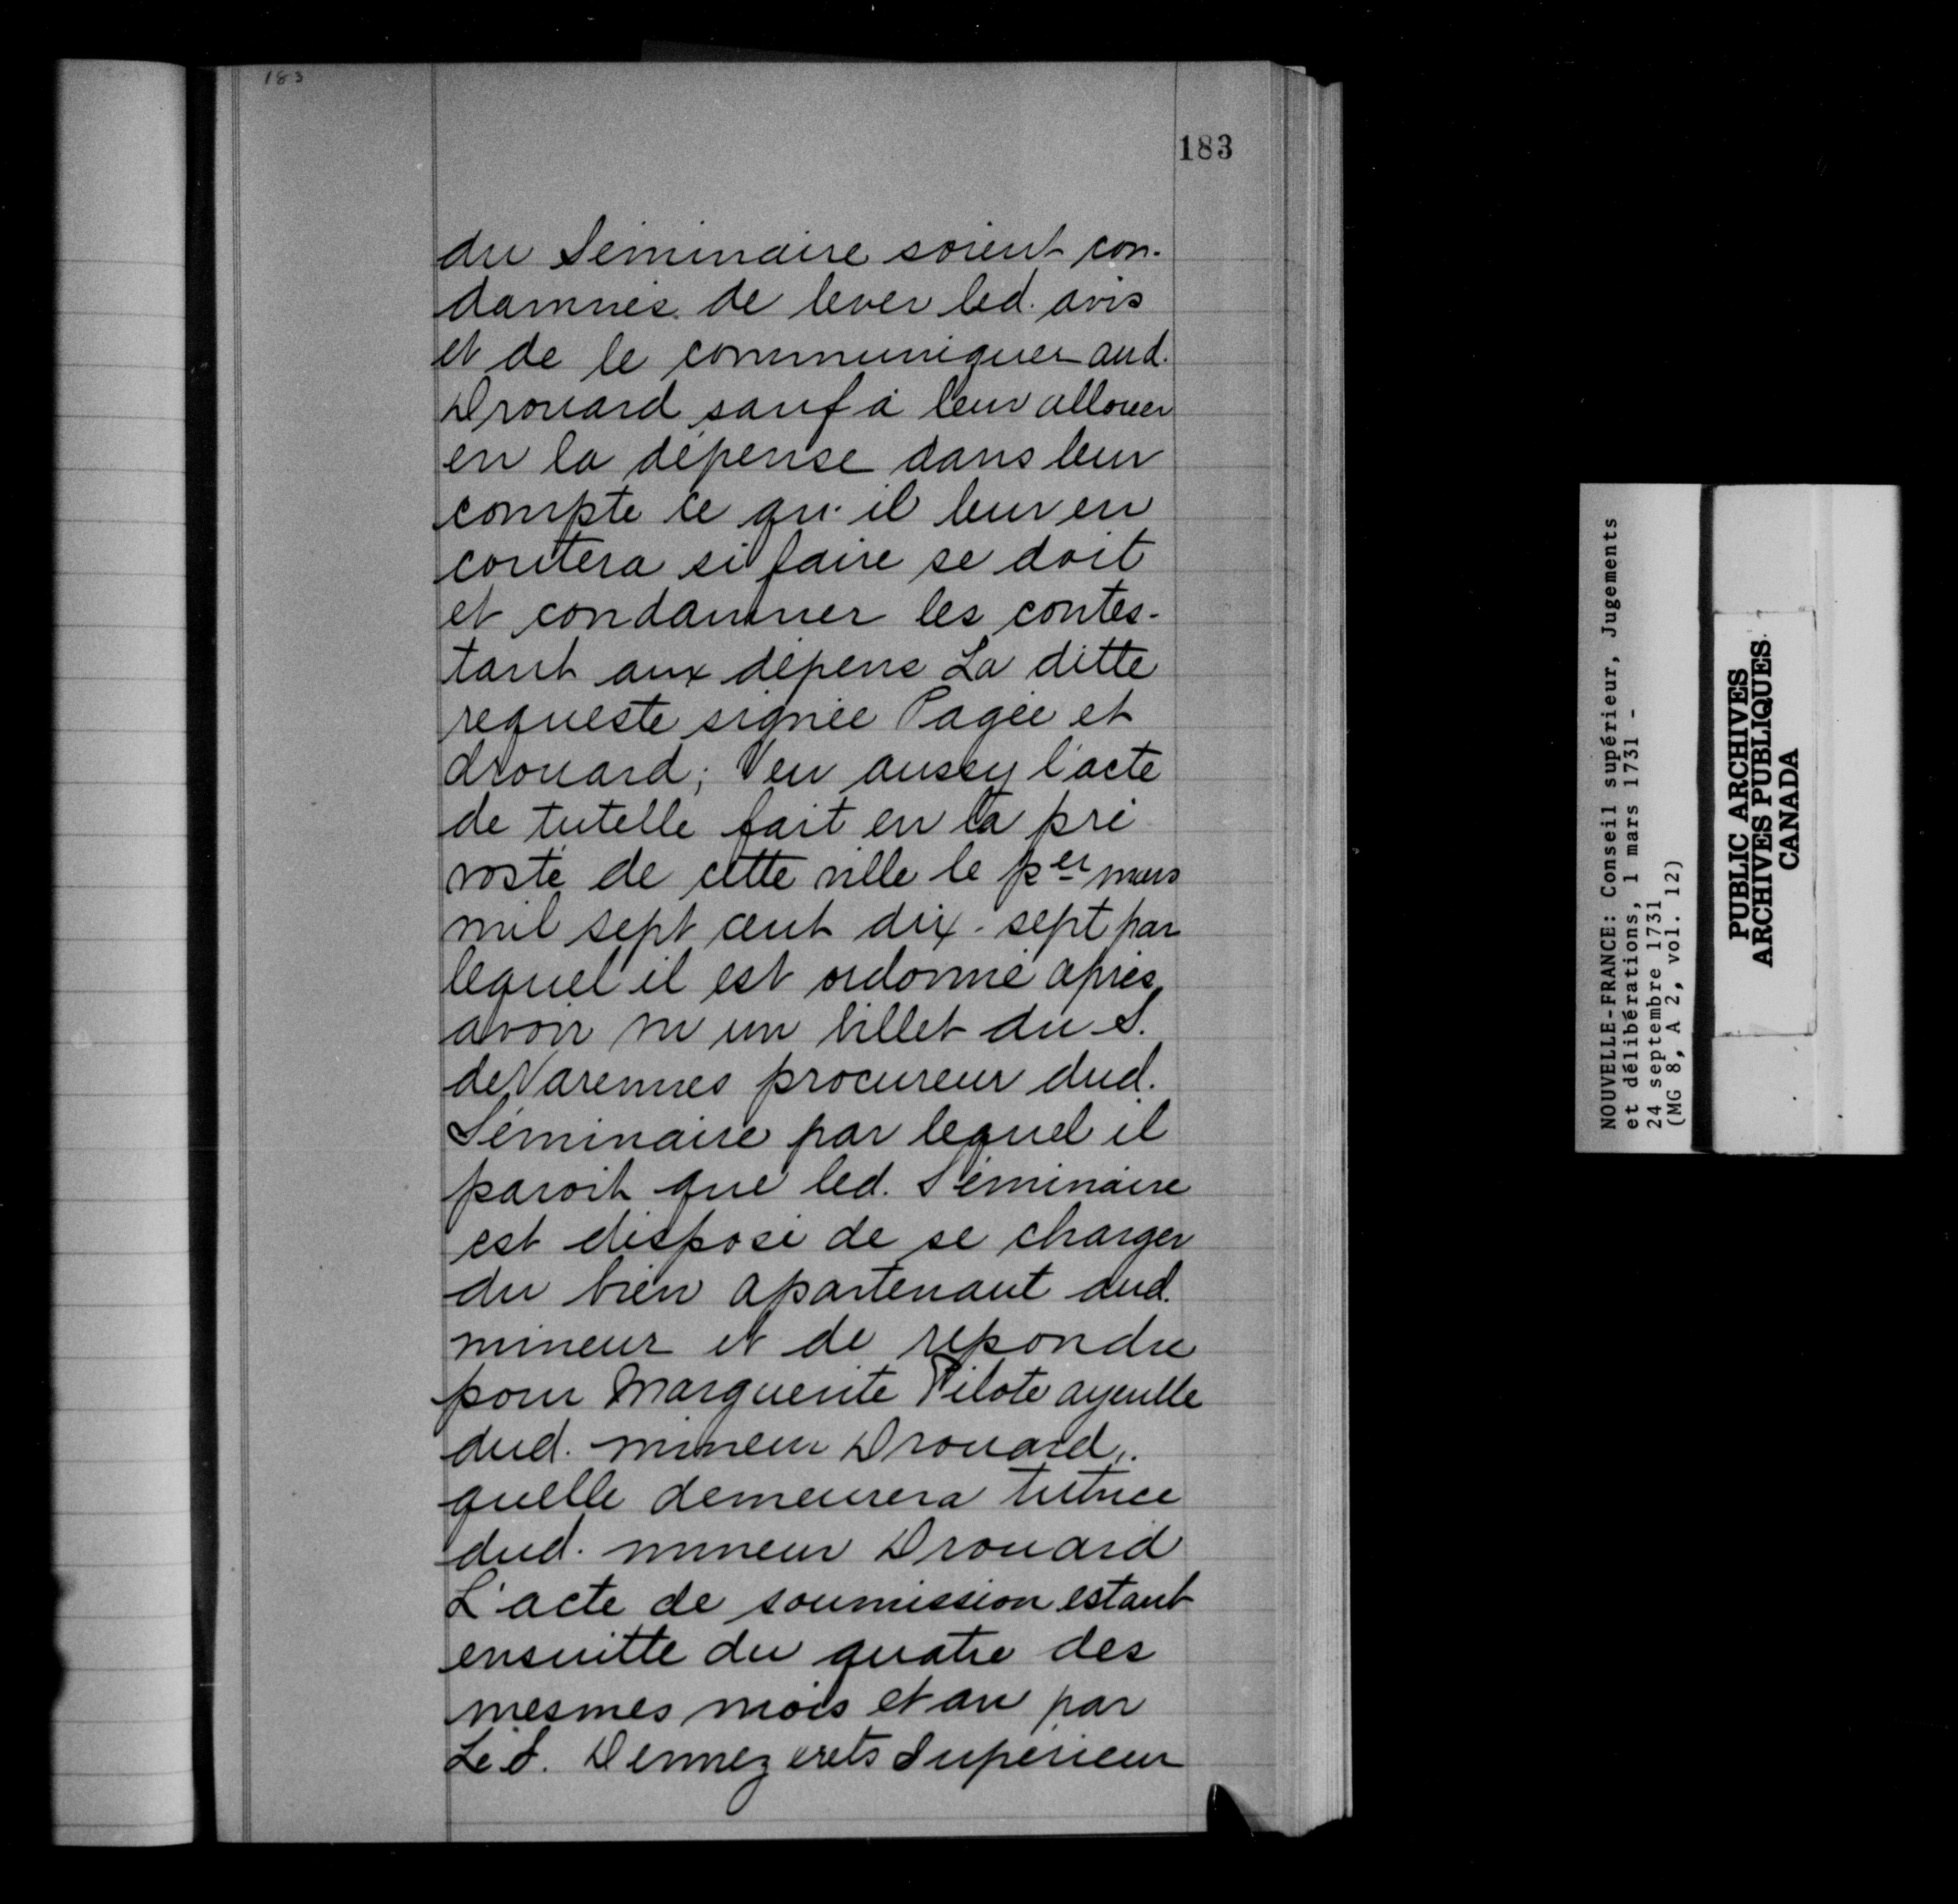 183
183
du Séminaire soient con-
damnés de lever led. avis
et de le communiquer aud.
Drouard sauf à leur allouer
en la dépense dans leur
compte ce qu'il leur en
coutera si faire se doit
et condamner les contes-
tant aux dépens La ditte
requeste signée Pagée et
drouard; Veu aussy l'acte
de tutelle fait en la pré
vosté de cette ville le per mars
mil sept cent dix-sept par
lequel il est ordonné après
avoir vu un billet du S.
de Varennes procureur dud.
Séminaire par lequel il
paroit que led. Séminaire
est disposé de se charger
du bien apartenant aud.
mineur et de repondre
pour Marguerite Pilote ayeulle
dud. mineur Drouard,
quelle demeurera tutrice
dud. mineur Drouard
L'acte de soumission estant
ensuitte du quatre des
mesmes mois et an par
Le S. Dermezerets Supérieur
NOUVELLE-FRANCE: Conseil supérieur, Jugements
et délibérations, 1 mars 1731 -
24 septembre 1731
(MG 8, A 2, vol. 12)
PUBLIC ARCHIVES
ARCHIVES PUBLIQUES
CANADA